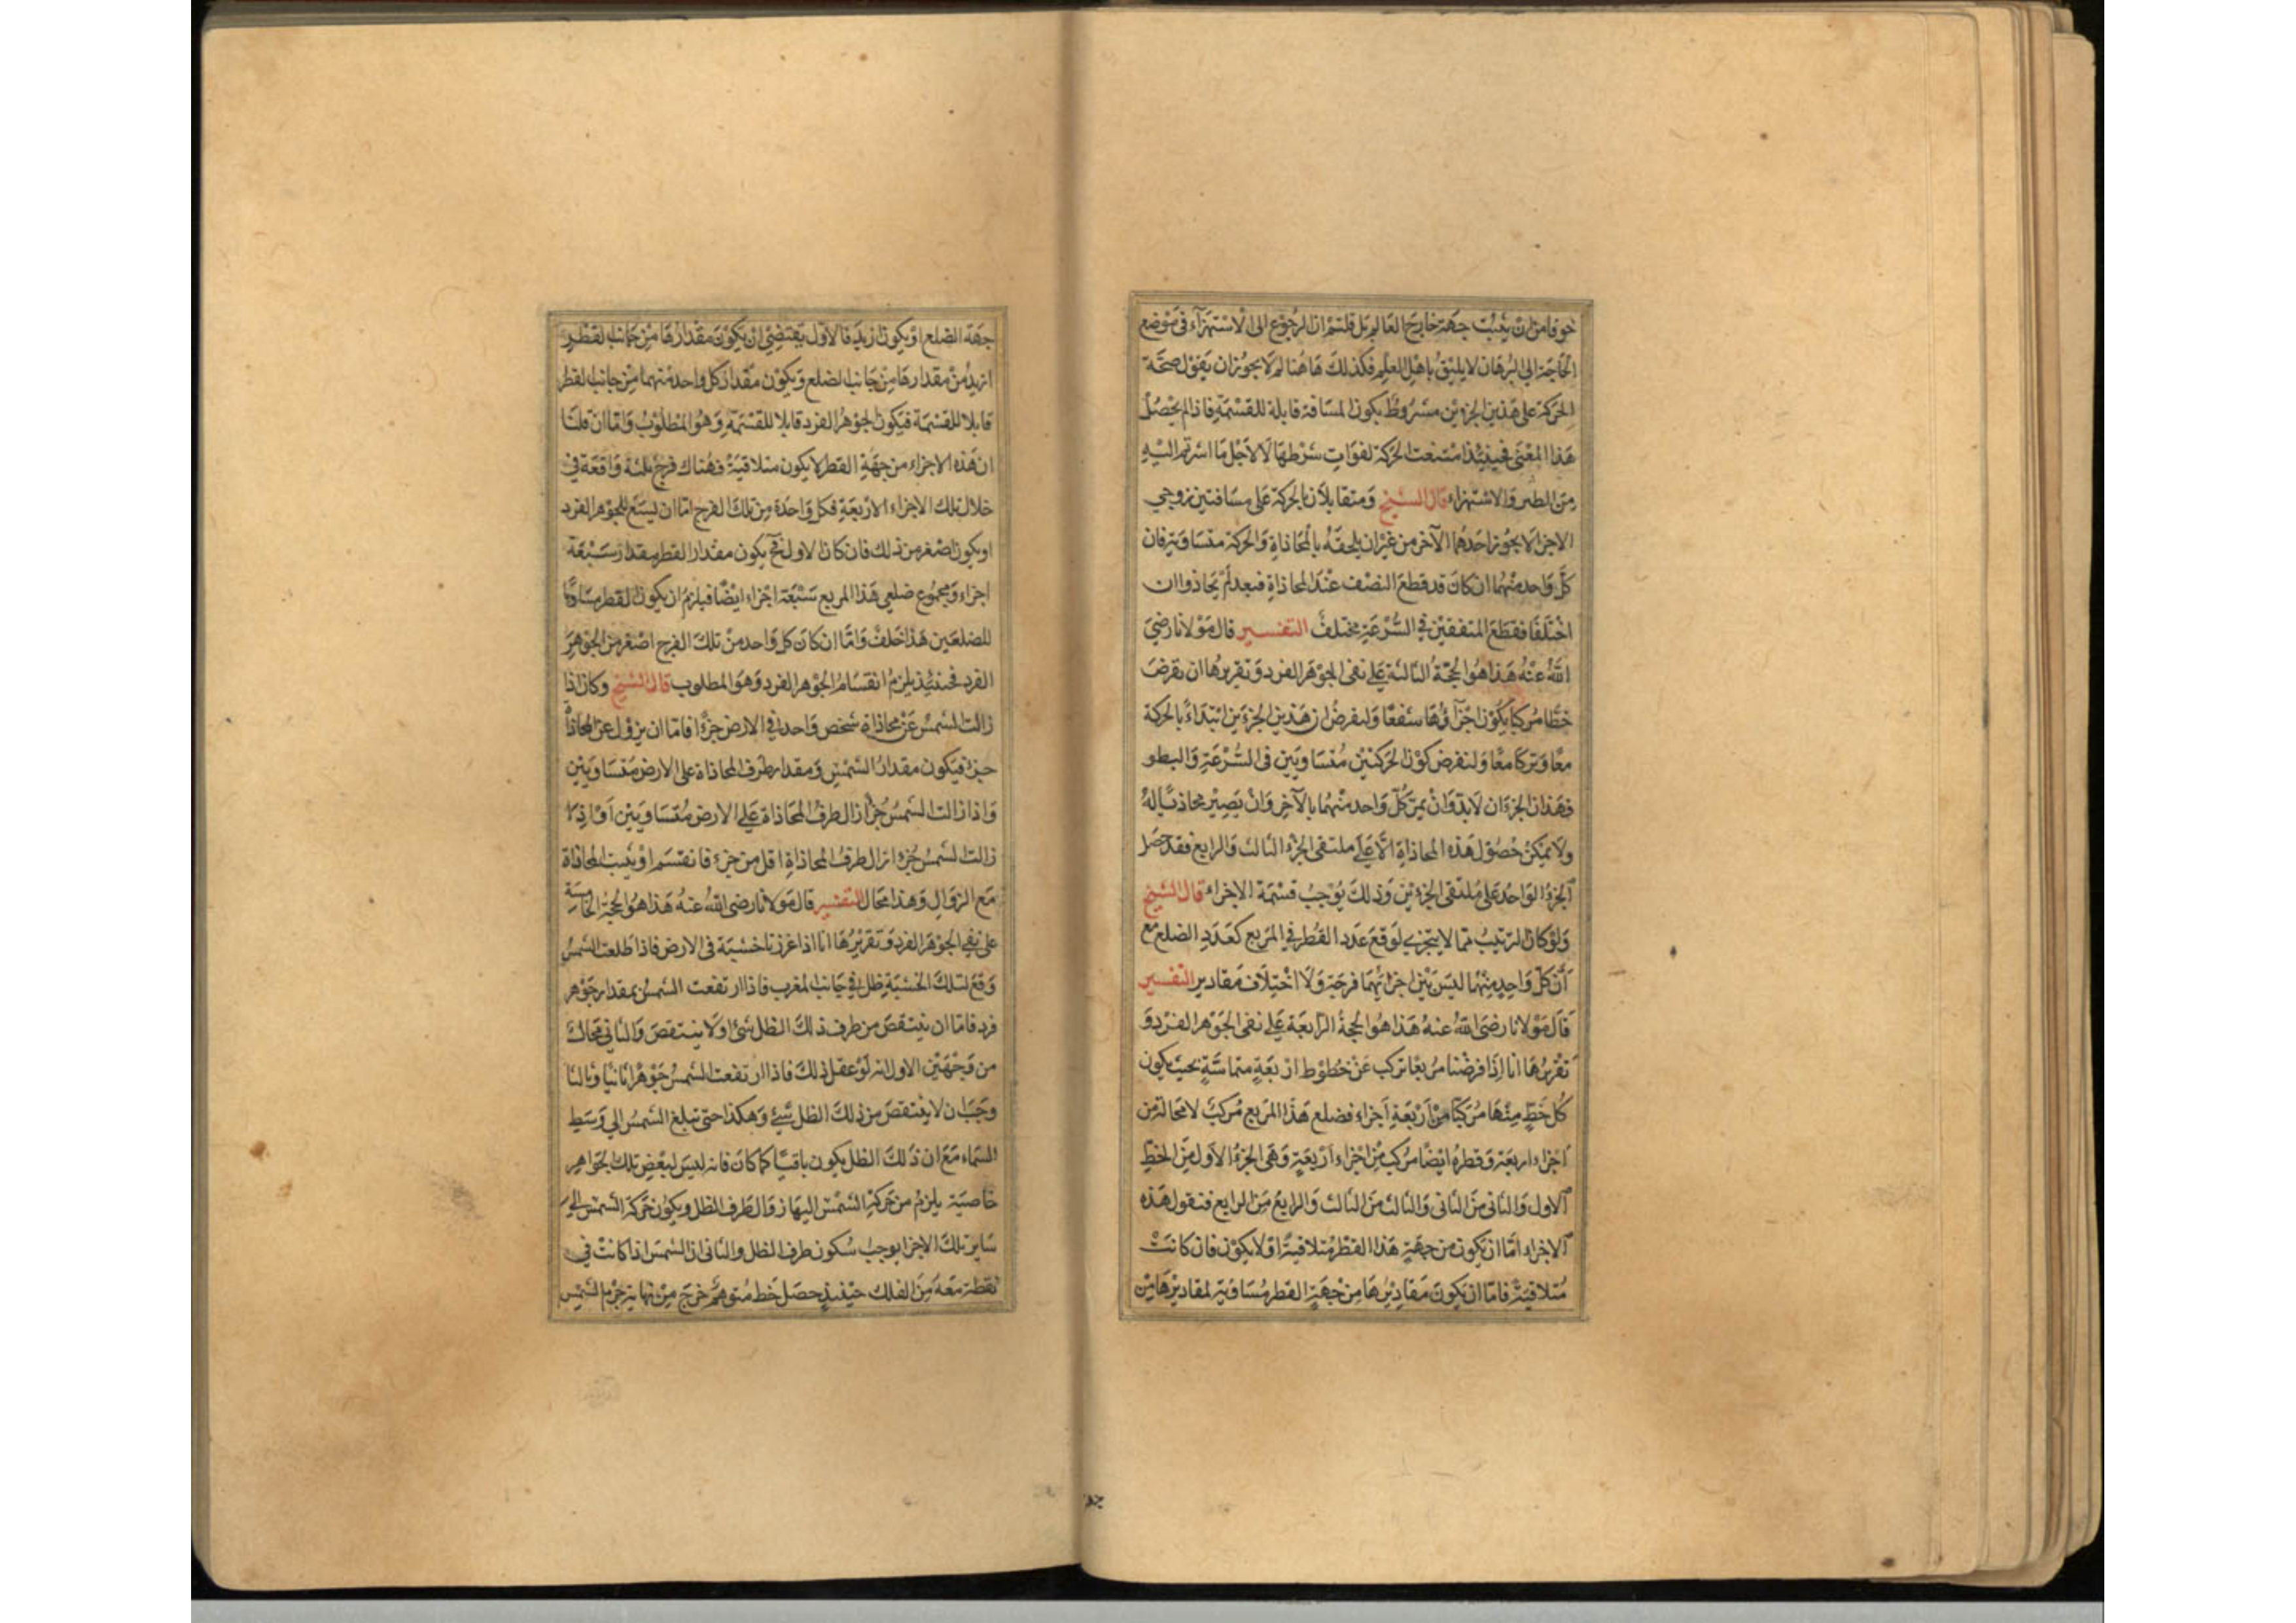 خوفا من ان يثبت جهة خارج العالم بل قلتم ان الرجوع الى الاستهزآء فى موضع
الحاجة الى البرهان لا يليق باهل العلم فكذلك هاهنا لم لا يجوز ان يقول صحة
الحركة على هذين الجزوين مشروط بكون المسافة قابلة للقسمة فاذا لم يحصل
هذا المعنى فحينئذ امتنعت الحركة لفوات شرطها لا لاجل ما اشرتم اليه
من الطنز والاستهزاء قال الشيخ ومتقابلان بالحركة على مسافتين زوجى
الاجزا لا يجوز احدهما الآخر من غير ان يلحقه بالمحاذاة والحركة متساوية فان
كل واحد منهما ان كان قد قطع النصف عند المحاذاة فبعد لم يحاذوا ان
اختلفا فقطع المتفقين فى السرعة مختلف التفسير قال مولانا رضى
الله عنه هذا هو الحجة الثالثة على نفى الجوهر الفرد وتقريرها ان نفرض
خطا مركبا يكون اجزآؤها شفعا ولنفرض ان هذين الجزءين ابتداء بالحركة
معا وتركا معا ولنفرض كون الحركتين متساويين فى السرعة والبطو
فهذان الجزءان لا بد وان يمر كل واحد منهما بالآخر وان يصير محاذيا له
ولا يمكن حصول هذه المحاذاة الا على ملتقى الجزء الثالث والرابع فقد حصل
الجزء الواحد على ملتقى الجزءين وذلك يوجب قسمة الاجزاء قال الشيخ
ولو كان الترتيب مما لا يتجزى لوقع عدد القطر فى المربع كعدد الضلع مع
ان كل واحد منهما ليس بين اجزائهما فرجة ولا اختلاف مقادير التفسير
قال مولانا رضى الله عنه هذا هو الحجة الرابعة على نفى الجوهر الفرد و
تقريرها انا اذا فرضنا مربعا تركب عن خطوط اربعة متماسة بحيث يكون
كل خط منها مركبا من اربعة اجزاء فضلع هذا المربع مركب لا محالة من
اجزاء اربعة وقطره ايضا مركب من اجزاء اربعة وهى الجزء الاول من الخط
الاول والثانى من الثانى والثالث من الثالث والرابع من الرابع فنقول هذه
الاجزاء اما ان يكون من جهة هذا القطر متلاقية او لا يكون فان كانت
متلاقية فاما ان يكون مقاديرها من جهة القطر مساوية لمقاديرها من
جهة الضلع او يكون ازيد فالاول يقتضى ان يكون مقدارها من جانب القطر
ازيد من مقدارها من جانب الضلع ويكون مقدار كل واحد منهما من جانب القطر
قابلا للقسمة فيكون الجوهر الفرد قابلا للقسمة وهو المطلوب واما ان قلنا
ان هذه الاجزاء من جهة القطر لا يكون متلاقية فهناك فرج ثلثة واقعة فى
خلال تلك الاجزاء الاربعة فكل واحدة من تلك الفرج اما ان ليسع للجوهر الفرد
او يكون اصغر من ذلك فان كان الاول فح يكون مقدار القطر مقدار سبعة
اجزاء ومجموع ضلعى هذا المربع سبعة اجزاء ايضا فيلزم ان يكون القطر مساويا
للضلعين هذا خلف واما ان كان كل واحد من تلك الفرج اصغر من الجوهر
الفرد فحينئذ يلزم انقسام الجوهر الفرد وهو المطلوب قال الشيخ وكان اذا
زالت الشمس عن محاذاة شخص واحد فى الارض جزءا فاما ان يزول عن المحاذاة
جزء فيكون مقدار الشمس ومقدار طرف المحاذاة على الارض متساويين
واذا زالت الشمس جزأ زال طرف المحاذاة على الارض متساويين او اذ
زالت الشمس جزءا زال طرف المحاذاة اقل من جزء فانقسم او يثبت المحاذاة
مع الزوال وهذا محال التفسير قال مولانا رضى الله عنه هذا هو الحجة الخامسة
على نفى الجوهر الفرد وتقريرها انا اذا غرزنا خشبة فى الارض فاذا طلعت الشمس
وقع لتلك الخشبة ظل فى جانب المغرب فاذا ارتفعت الشمس بمقدار جوهر
فرد فاما ان ينتقص من طرف ذلك الظل شئ او لا ينتقص والثانى محال
من وجهين الاول انه لو عقل ذلك فاذا ارتفعت الشمس جوهرا ثانيا وثالثا
وجب ان لا ينتقص من ذلك الظل شئ وهكذا حتى تبلغ الشمس الى وسط
السماء مع ان ذلك الظل يكون باقيا كما كان فانه ليس لبعض تلك الجواهر
خاصية يلزم من حركة الشمس اليها زوال طرف الظل ويكون حركة الشمس الى
ساير تلك الاجزا يوجب سكون طرف الظل والثانى ان الشمس اذا كانت فى
نقطة معه من الفلك حينئذ حصل خط متوهم خرج من نهاية جرم الشمس